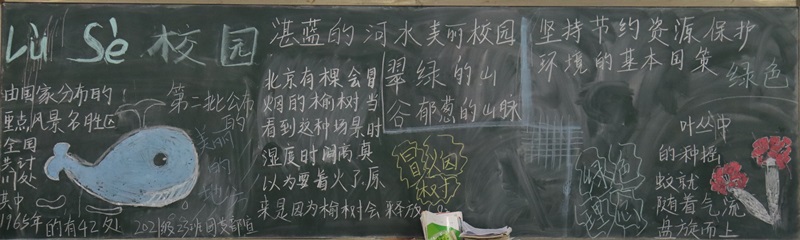 Lǜ Sè 校园
由国家分布的
重点风景名胜区
全国
共计
119处
其中
1965年的有42处
第二批公布
的
美丽
的
2021级23班团支部宣
湛蓝的河水美丽校园
翠绿的山
谷郁葱的山脉
北京有棵会冒
烟的榆树当
看到这种场景时
湿度时间高真
以为要着火了.原
来是因为榆树会释放
冒烟
树
坚持节约资源保护
环境的基本国策
绿色
绿色
理念
叶丛中
的种摇
蚁就
随着气流
盘旋而上